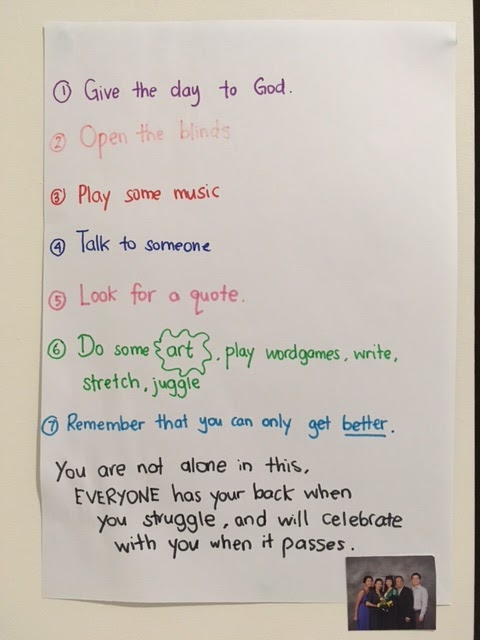 ① Give the day to God.
② Open the blinds
③ Play some music
④ Talk to someone
⑤ Look for a quote.
⑥ Do some art, play wordgames, write,
stretch, juggle
⑦ Remember that you can only get better.
You are not alone in this,
EVERYONE has your back when
you struggle, and will celebrate
with you when it passes.